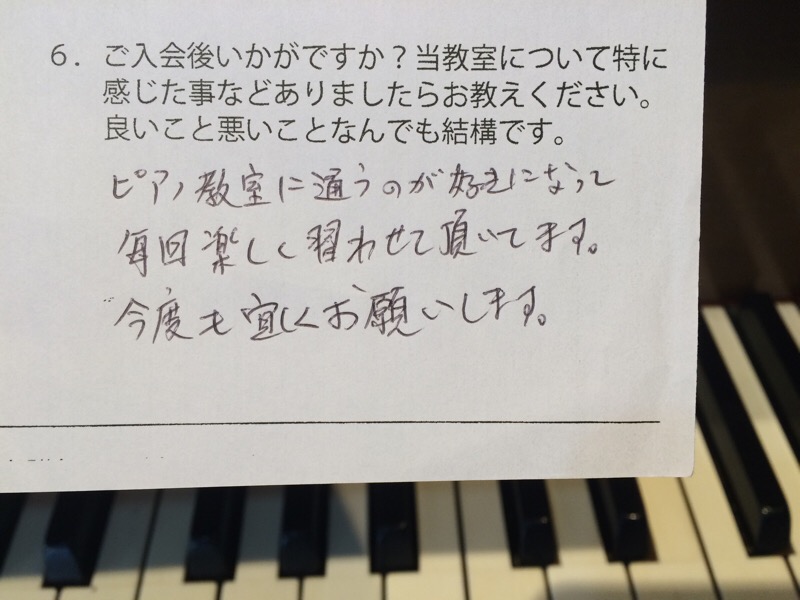 6. ご入会後いかがですか？当教室について特に
感じた事などありましたらお教えください。
良いこと悪いことなんでも結構です。
ピアノ教室に通うのが好きになって
毎回楽しく習わせて頂いてます。
今度も宜しくお願いします。